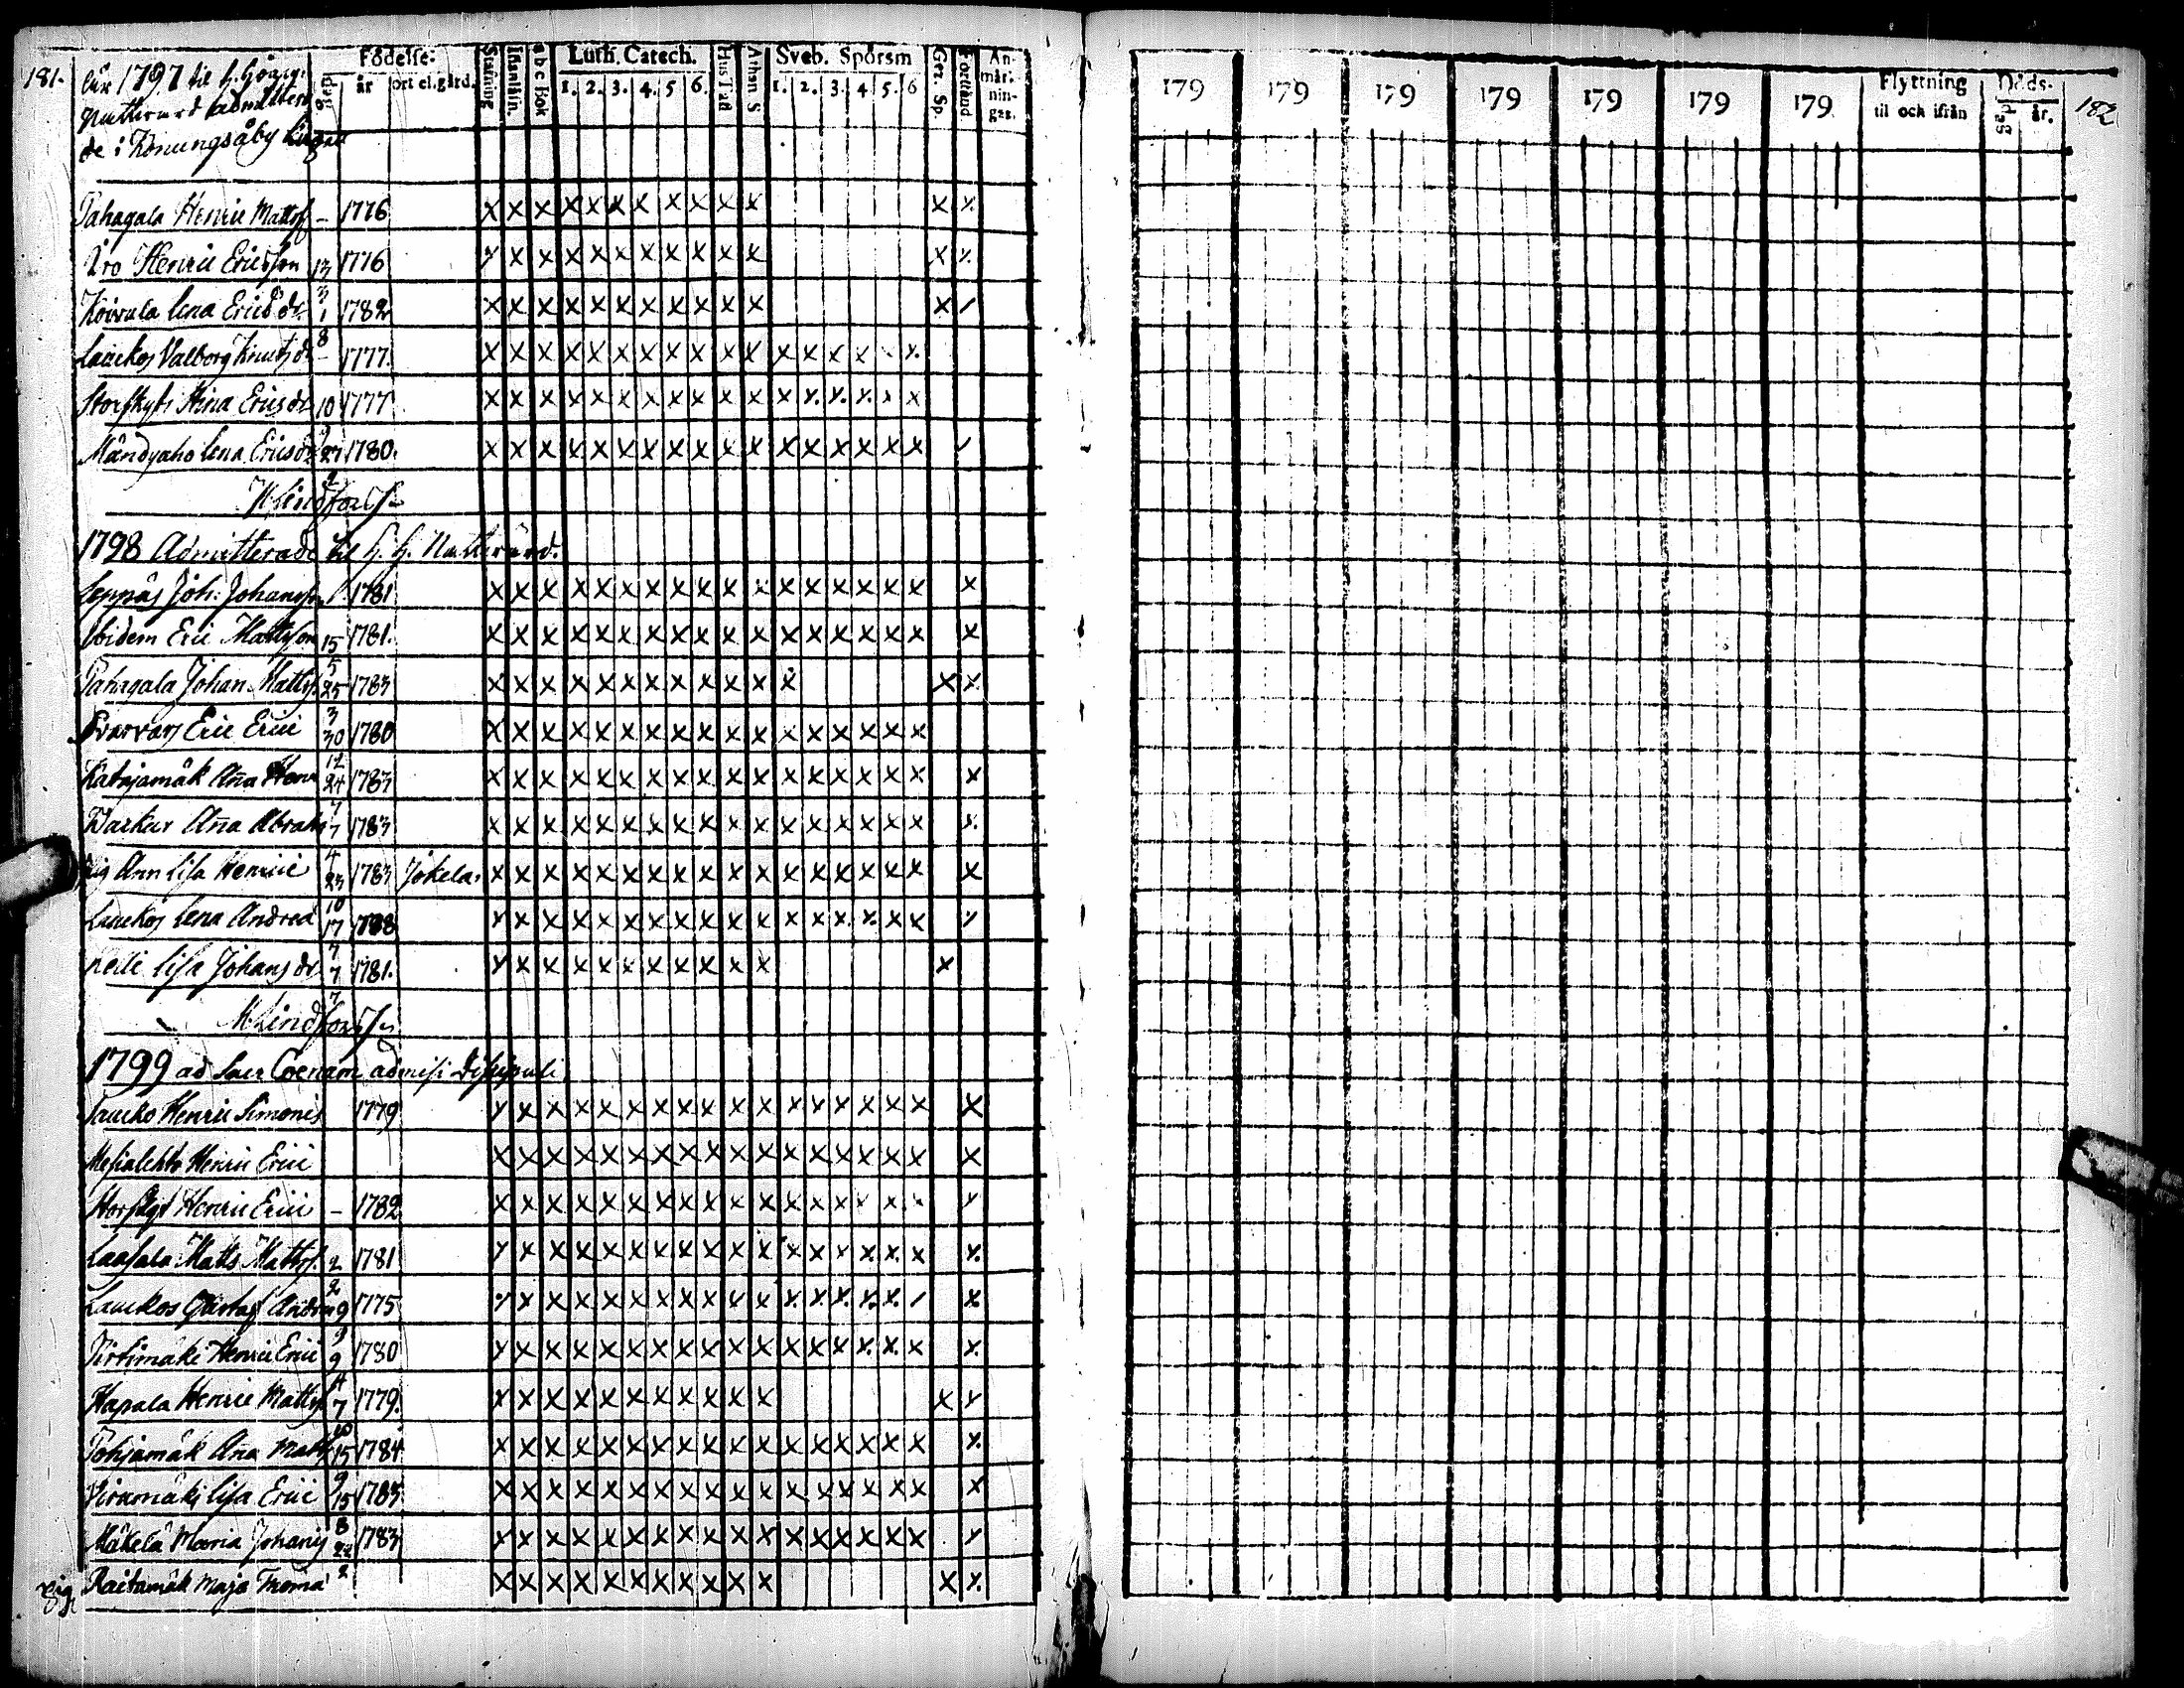 181.
åur 1797 til h. högv.
Nattvard admittera
de i Konungsåby
Födelse:
dag
år
ort el. gård.
Stafning
Inanläsn.
a b c bok
Luth. Catech.
1. 2. 3. 4. 5 6.
Hus Tafl
Athan S
Sveb. Spörsm
1. 2. 3. 4 5. 6
Gez. Sp.
Förstånd
An-
mär-
nin-
gar.
Pahagala Henric Mattss - 1776 x x x x x x x x x x x x x
Iro Henric Ericsson 13/3 1776 x x x x x x x x x x x x x
Koivula Lena Ericsdr 1/8 1782 x x x x x x x x x x x x /
Lauckos Valborg Knutsdr - 1777. x x x x x x x x x x x x x x x x x
Storskyt Stina Ericsdr 10/9 1777 x x x x x x x x x x x x x x x x x
Måndyaho Lena Ericsdr 27/2 1780. x x x x x x x x x x x x x x x x x /
M Lindfors
1798 Admitterade til H. H. Nattvard.
Leppäs Joh: Johansson 1781 x x x x x x x x x x x x x x x x x x
Ibidem Eric Mattsson 15/5 1781. x x x x x x x x x x x x x x x x x x
Pahagala Johan Matts. 25/3 1783 x x x x x x x x x x x x x x
Svarvars Eric Erici 30/12 1780 x x x x x x x x x x x x x x x x x
Katajamäk Aña Henr 24/7 1783 x x x x x x x x x x x x x x x x x x
Warkar Aña Abrah 7/4 1783 x x x x x x x x x x x x x x x x x x
pig Ann Lisa Henrici 23/10 1783 Jokela. x x x x x x x x x x x x x x x x x x
Lauckos Lena Andreæ 17/7 x x x x x x x x x x x x x x x x x x
Lisa Johansdr 7/7 1781. x x x x x x x x x x x x
M Lindfors
1799 ad Sacr Coenam admisi Discipuli
Laucko Henric Simonis 1779 x x x x x x x x x x x x x x x x x x
Mesialehto Henric Erici x x x x x x x x x x x x x x x x x x
Storskyt Henric Erici - 1782 x x x x x x x x x x x x x x x x x x
Laasala Matts Mattss. 2/2 1781 x x x x x x x x x x x x x x x x x x
Lauckos Gustaf Andreæ 9/9 1775 x x x x x x x x x x x x x x x x / x
Pirtimäki Henric Erici 9/11 1780 x x x x x x x x x x x x x x x x x x
Hapala Henric Matts 7/10 1779. x x x x x x x x x x x x x
Pohjamäk Aña Matts 15/9 1784 x x x x x x x x x x x x x x x x x x
Viramäki Lisa Erici 15/8 1785 x x x x x x x x x x x x x x x x x x
Mäkelä Maria Johanis 22/2 1783 x x x x x x x x x x x x x x x x x x
pig Raitamäk Maja Thomæ x x x x x x x x x x x x x
179 179 179 179 179 179 179
Flyttning
til och ifrån
Döds-
dag
år.
182